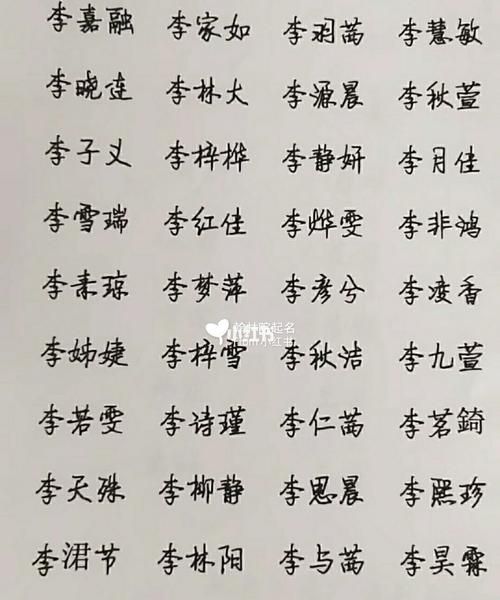 李嘉融 李家如 李羽茜 李慧敏
李晓连 李林大 李源晨 李秋萱
李子义 李梓桦 李静妍 李月佳
李雪瑞 李红佳 李烨雯 李非鸿
李素琼 李梦萍 李彦兮 李凌香
起名
小红书
小红书
李姊婕 李梓雪 李秋洁 李九萱
李若雯 李诗瑾 李仁茜 李茗錡
李天殊 李柳静 李思晨 李熙珍
李涒节 李林阳 李与茜 李昊霖